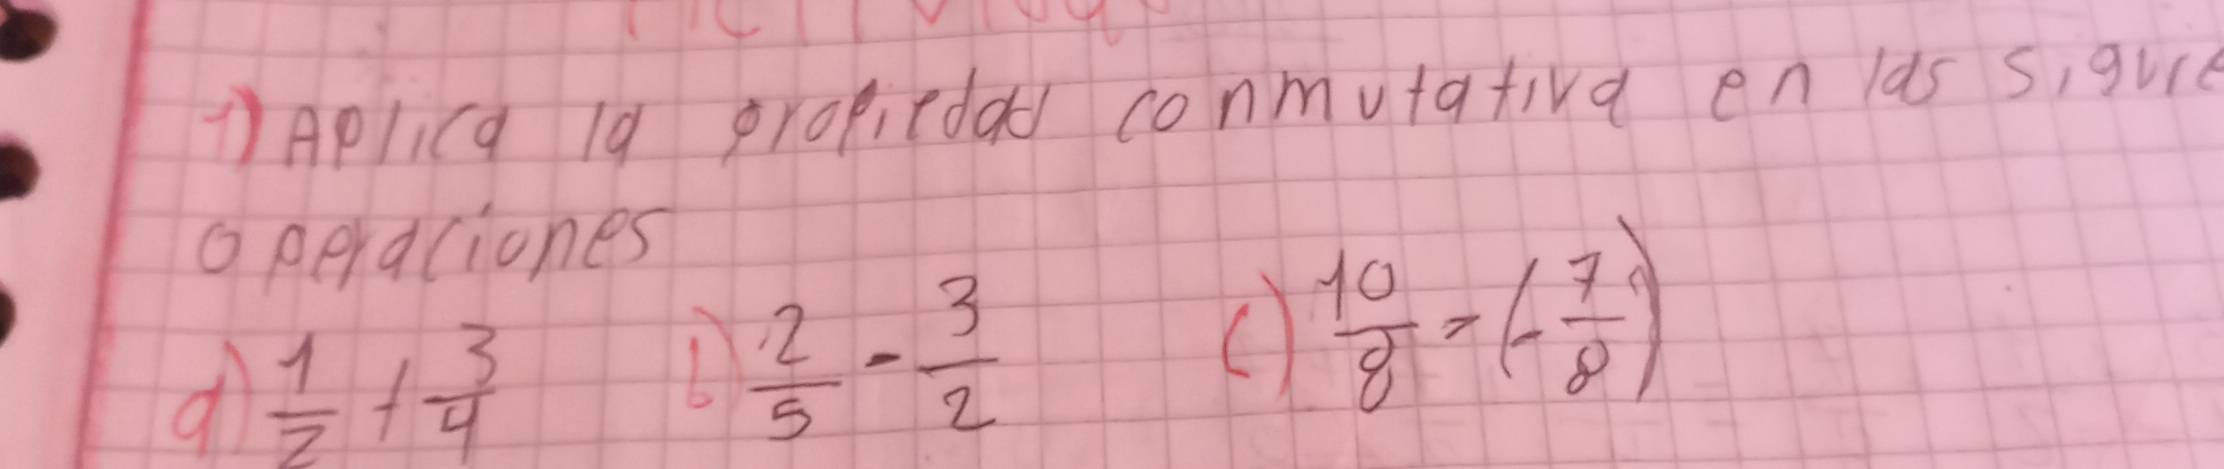 1) Aplica la propiedad conmutativa en las sigуie
operaciones
a) 1/2 + 3/4 b) 2/5 - 3/2 c) 10/8 = (-7/8)